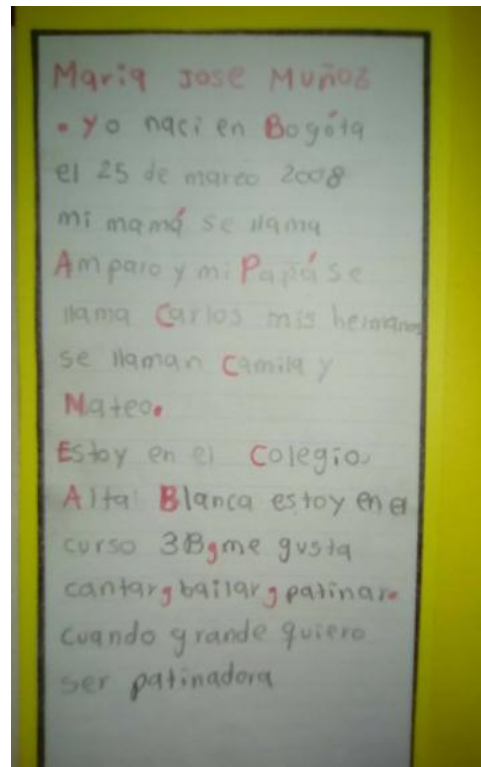 Maria Jose Muñoz
• Yo naci en Bogóta
el 25 de marzo 2008
mi mamá se llama
Amparo y mi Papá se
llama Carlos mis hermanos
se llaman Camila y
Mateo.
Estoy en el Colegio
Alta Blanca estoy en el
curso 3B, me gusta
cantar, bailar, patinar.
cuando grande quiero
ser patinadora